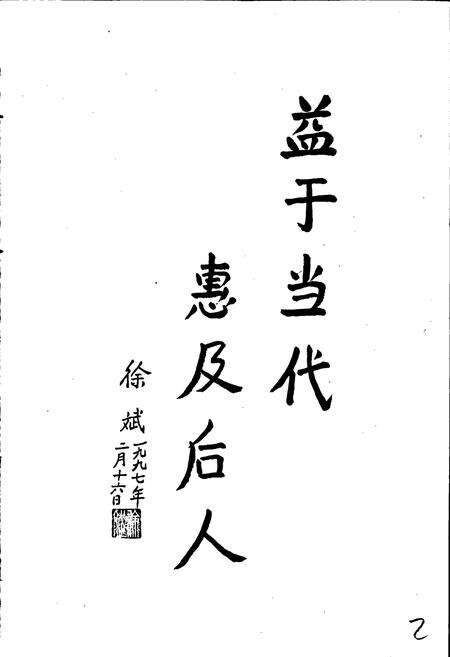 益于当代
惠及后人
徐斌
一九九七年
二月十六日
2